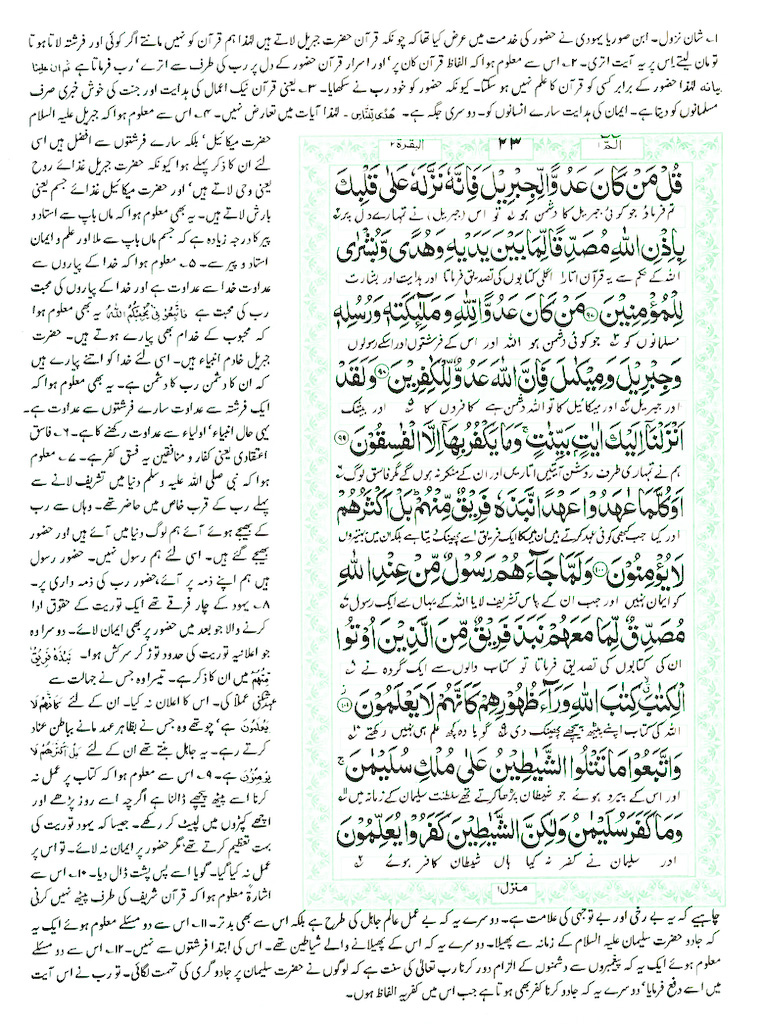 ۱۔ شان نزول۔ ابن صوریا یہودی نے حضور کی خدمت میں عرض کیا تھا کہ چونکہ قرآن حضرت جبریل لاتے ہیں لہٰذا ہم قرآن کو نہیں مانتے اگر کوئی اور فرشتہ لاتا ہوتا
تو مان لیتے اس پر یہ آیت اتری۔ ۲۔ اس سے معلوم ہوا کہ الفاظ قرآن کان پر' اور اسرار قرآن حضور کے دل پر رب کی طرف سے اترے' رب فرماتا ہے ثم ان علینا
بیانہ لہٰذا حضور کے برابر کسی کو قرآن کا علم نہیں ہو سکتا۔ کیونکہ حضور کو خود رب نے سکھایا۔ ۳۔ یعنی قرآن نیک اعمال کی ہدایت اور جنت کی خوش خبری صرف
مسلمانوں کو دیتا ہے۔ ایمان کی ہدایت سارے انسانوں کو۔ دوسری جگہ ہے۔ ھُدًی لِلنَّاسِ۔ لہٰذا آیات میں تعارض نہیں۔ ۴۔ اس سے معلوم ہوا کہ جبریل علیہ السلام
حضرت میکائیل' بلکہ سارے فرشتوں سے افضل ہیں اسی
لئے ان کا ذکر پہلے ہوا کیونکہ حضرت جبریل غذائے روح
یعنی وحی لاتے ہیں' اور حضرت میکائیل غذائے جسم یعنی
بارش لاتے ہیں۔ یہ بھی معلوم ہوا کہ ماں باپ سے استاد و
پیر کا درجہ زیادہ ہے کہ جسم ماں باپ سے ملا اور علم و ایمان
استاد و پیر سے۔ ۵۔ معلوم ہوا کہ خدا کے پیاروں سے
عداوت خدا سے عداوت ہے اور خدا کے پیاروں کی محبت
رب کی محبت ہے فَاتَّبِعُوْنِیْ یُحْبِبْکُمُ اللّٰهُ یہ بھی معلوم ہوا
کہ محبوب کے خدام بھی پیارے ہوتے ہیں۔ حضرت
جبریل خادم انبیاء ہیں۔ اسی لئے خدا کو اتنے پیارے ہیں
کہ ان کا دشمن رب کا دشمن ہے۔ یہ بھی معلوم ہوا کہ
ایک فرشتہ سے عداوت سارے فرشتوں سے عداوت ہے۔
یہی حال انبیاء' اولیاء سے عداوت رکھنے کا ہے۔ ۶۔ فاسق
اعتقادی یعنی کفار و منافقین یہ فسق کفر ہے۔ ۷۔ معلوم
ہوا کہ نبی صلی اللہ علیہ وسلم دنیا میں تشریف لانے سے
پہلے رب کے قرب خاص میں حاضر تھے۔ وہاں سے رب
کے بھیجے ہوئے آئے ہم لوگ دنیا میں آئے ہیں اور حضور
بھیجے گئے ہیں۔ اسی لئے ہم رسول نہیں۔ حضور رسول
ہیں ہم اپنے ذمہ پر آئے، حضور رب کی ذمہ داری پر۔
۸۔ یہود کے چار فرقے تھے ایک توریت کے حقوق ادا
کرنے والا جو بعد میں حضور پر بھی ایمان لائے۔ دوسرا وہ
جو اعلانیہ توریت کی حدود توڑ کر سرکش ہوا۔ نَبَذَہٗ فَرِیْقٌ
مِّنْھُمْ میں ان کا ذکر ہے۔ تیسرا وہ جس نے جہالت سے
عہد شکنی عملاً کی۔ اس کا اعلان نہ کیا۔ ان کے لئے کَاَنَّھُمْ لَا
یَعْلَمُوْنَ ہے' چوتھے وہ جس نے بظاہر عہد مانے بباطن عناد
کرتے رہے۔ یہ جاہل بنتے تھے ان کے لئے بَلْ اَکْثَرُھُمْ لَا
یُؤْمِنُوْنَ ہے۔ ۹۔ اس سے معلوم ہوا کہ کتاب پر عمل نہ
کرنا اسے پیٹھ پیچھے ڈالنا ہے اگرچہ اسے روز پڑھے اور
اچھے کپڑوں میں لپیٹ کر رکھے۔ جیسا کہ یہود توریت کی
بہت تعظیم کرتے تھے مگر حضور پر ایمان نہ لائے۔ تو اس پر
عمل نہ کیا گیا۔ گویا اسے پس پشت ڈال دیا۔ ۱۰۔ اس سے
اشارۃً معلوم ہوا کہ قرآن شریف کی طرف پیٹھ نہیں کرنی
الٓمّٓ ۱ ۲۳ البقرۃ ۲
قُلْ مَنْ كَانَ عَدُوًّا لِّجِبْرِيْلَ فَاِنَّهٗ نَزَّلَهٗ عَلٰى قَلْبِكَ
تم فرمادو جو کوئی جبریل کا دشمن ہو تو اس (جبریل) نے تمہارے دل پر
بِاِذْنِ اللّٰهِ مُصَدِّقًا لِّمَا بَيْنَ يَدَيْهِ وَهُدًى وَّبُشْرٰى
اللہ کے حکم سے یہ قرآن اتارا اگلی کتابوں کی تصدیق فرماتا اور ہدایت اور بشارت
لِلْمُؤْمِنِيْنَ ۝ مَنْ كَانَ عَدُوًّا لِّلّٰهِ وَمَلٰٓئِكَتِهٖ وَرُسُلِهٖ
مسلمانوں کو جو کوئی دشمن ہو اللہ اور اس کے فرشتوں اور اسکے رسولوں
وَجِبْرِيْلَ وَمِيْكٰىلَ فَاِنَّ اللّٰهَ عَدُوٌّ لِّلْكٰفِرِيْنَ ۝ وَلَقَدْ
اور جبریل اور میکائیل کا تو اللہ دشمن ہے کافروں کا اور بیشک
اَنْزَلْنَاۤ اِلَيْكَ اٰيٰتٍۭ بَيِّنٰتٍ ۚ وَمَا يَكْفُرُ بِهَاۤ اِلَّا الْفٰسِقُوْنَ ۝
ہم نے تمہاری طرف روشن آیتیں اتاریں اور ان کے منکر نہ ہوں گے مگر فاسق لوگ
اَوَكُلَّمَا عٰهَدُوْا عَهْدًا نَّبَذَهٗ فَرِيْقٌ مِّنْهُمْ ؕ بَلْ اَكْثَرُهُمْ
اور کیا جب کبھی کوئی عہد کرتے ہیں ان میں کا ایک فریق اسے پھینک دیتا ہے بلکہ ان میں بہتیروں
لَا يُؤْمِنُوْنَ ۝ وَلَمَّا جَآءَهُمْ رَسُوْلٌ مِّنْ عِنْدِ اللّٰهِ
کو ایمان نہیں اور جب ان کے پاس تشریف لایا اللہ کے یہاں سے ایک رسول
مُصَدِّقٌ لِّمَا مَعَهُمْ نَبَذَ فَرِيْقٌ مِّنَ الَّذِيْنَ اُوْتُوا
ان کی کتابوں کی تصدیق فرماتا تو کتاب والوں سے ایک گروہ نے
الْكِتٰبَ ۙ كِتٰبَ اللّٰهِ وَرَآءَ ظُهُوْرِهِمْ كَاَنَّهُمْ لَا يَعْلَمُوْنَ ۝
اللہ کی کتاب اپنے پیٹھ پیچھے پھینک دی گویا وہ کچھ علم ہی نہیں رکھتے
وَاتَّبَعُوْا مَا تَتْلُوا الشَّيٰطِيْنُ عَلٰى مُلْكِ سُلَيْمٰنَ ۚ
اور اس کے پیرو ہوئے جو شیطان پڑھا کرتے تھے سلطنت سلیمان کے زمانہ میں
وَمَا كَفَرَ سُلَيْمٰنُ وَلٰكِنَّ الشَّيٰطِيْنَ كَفَرُوْا يُعَلِّمُوْنَ
اور سلیمان نے کفر نہ کیا ہاں شیطان کافر ہوئے
منزل ۱
چاہیے کہ یہ بے رخی اور بے توجہی کی علامت ہے۔ دوسرے یہ کہ بے عمل عالم جاہل کی طرح ہے بلکہ اس سے بھی بد تر۔ ۱۱۔ اس سے دو مسئلے معلوم ہوئے ایک یہ
کہ جادو حضرت سلیمان علیہ السلام کے زمانہ سے پھیلا۔ دوسرے یہ کہ اس کے پھیلانے والے شیاطین تھے۔ اس کی ابتدا فرشتوں سے نہیں۔ ۱۲۔ اس سے دو مسئلے
معلوم ہوئے ایک یہ کہ پیغمبروں سے دشمنوں کے الزام دور کرنا رب تعالیٰ کی سنت ہے کہ لوگوں نے حضرت سلیمان پر جادو گری کی تہمت لگائی۔ تو رب نے اس آیت
میں اسے دفع فرمایا' دوسرے یہ کہ جادو کرنا کفر بھی ہوتا ہے جب اس میں کفریہ الفاظ ہوں۔